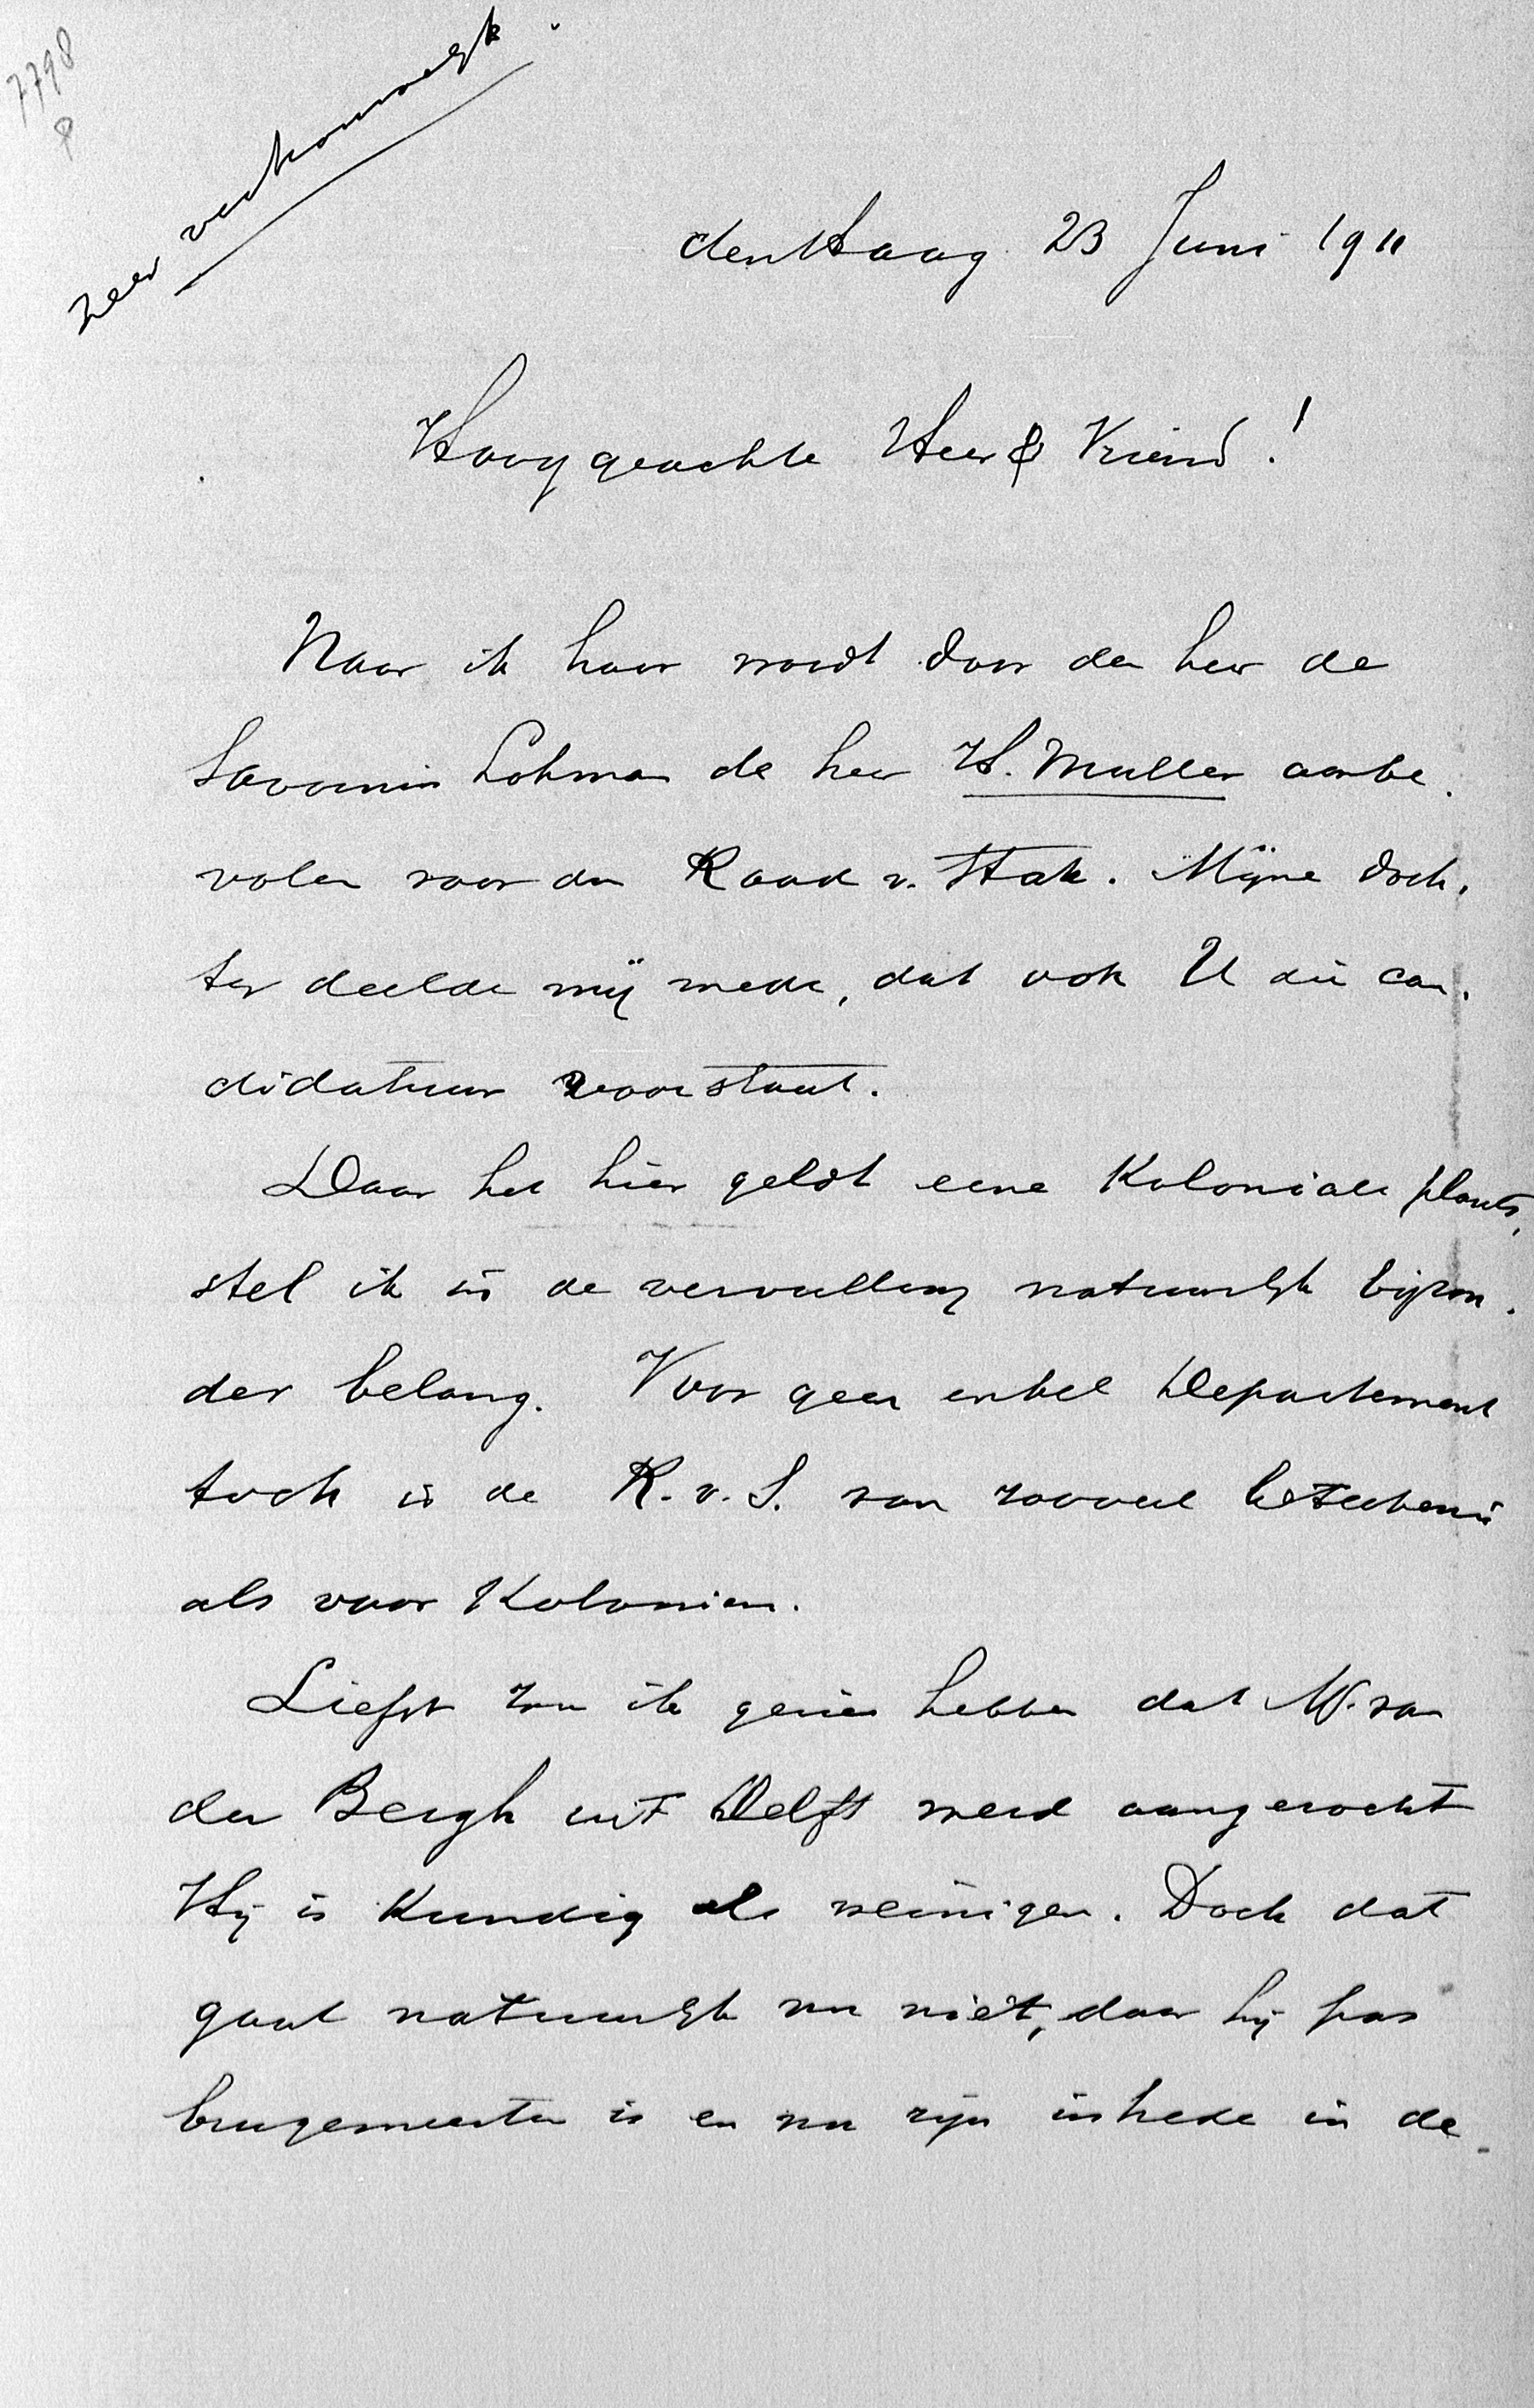 7798
zeer vertrouwelijk.
den Haag 23 Juni 1911
Hooggeachte Heer & Vriend!
Naar ik hoor wordt door den heer de
Savornin Lohman de heer H. Muller aanbe-
volen voor den Raad v. State. Mijne doch-
ter deelde mij mede, dat ook U die can-
didatuur voorstaat.
Daar het hier geldt eene Koloniale plaats,
stel ik in de vervulling natuurlijk bijzon-
der belang. Voor geen enkel Departement
toch is de R.v.S. van zooveel beteekenis
als voor Koloniën.
Liefst zou ik gezien hebben dat Mr. van
den Bergh uit Delft werd aangezocht
Hij is Kundig als weinigen. Doch dat
gaat natuurlijk nu niet, daar hij pas
burgemeester is en nu zijn intrede in de